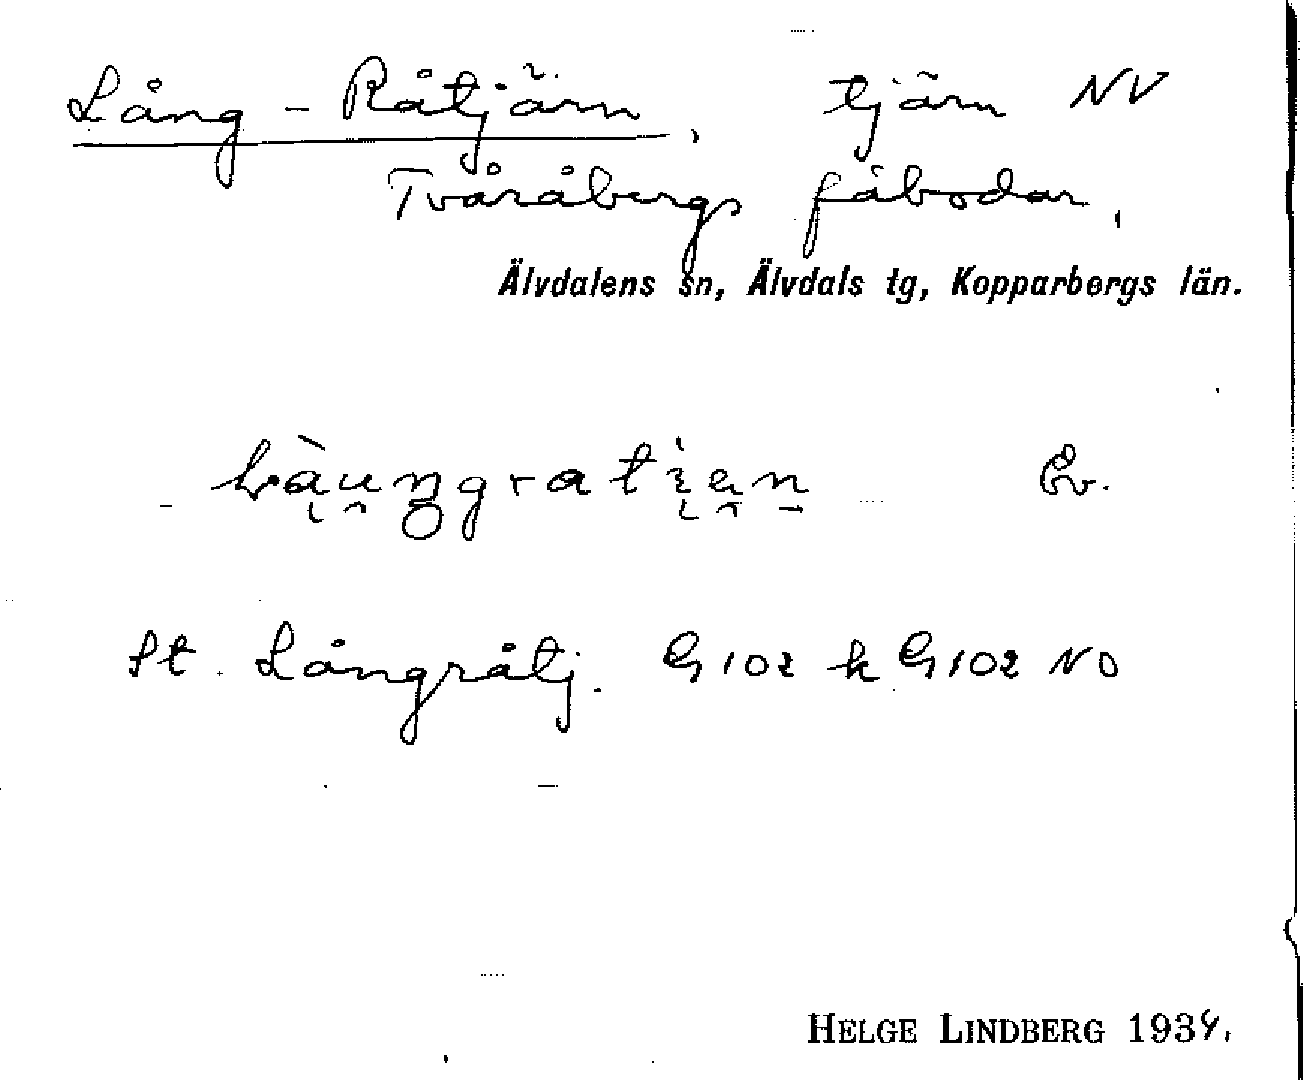 Lång-Råtjärn, tjärn NV
Tvåråbergs fäbodar,
Älvdalens sn, Älvdals tg, Kopparbergs län.
St. Långråtj. G102 k G102 NO
HELGE LINDBERG 1934.